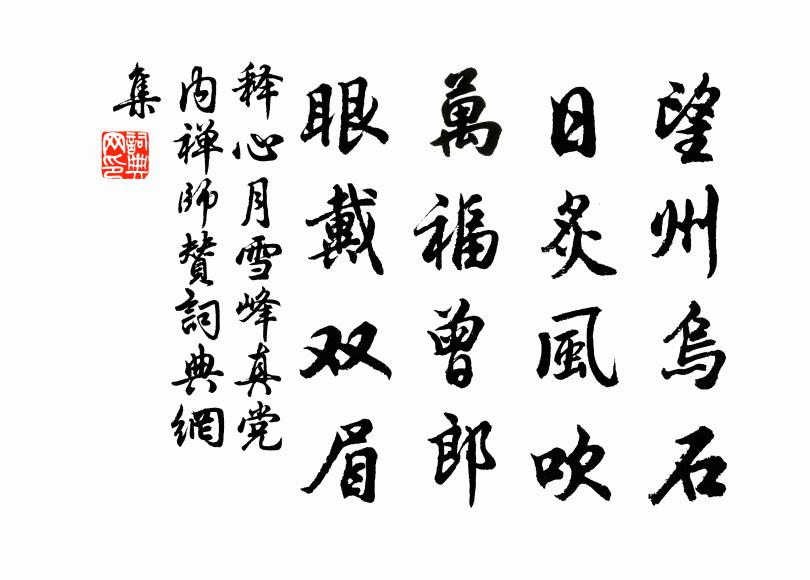 望州烏石
日炙風吹
萬福曾郎
眼戴双眉
释心月雪峰真党
内禅師贊詞典網
集
詞典網印